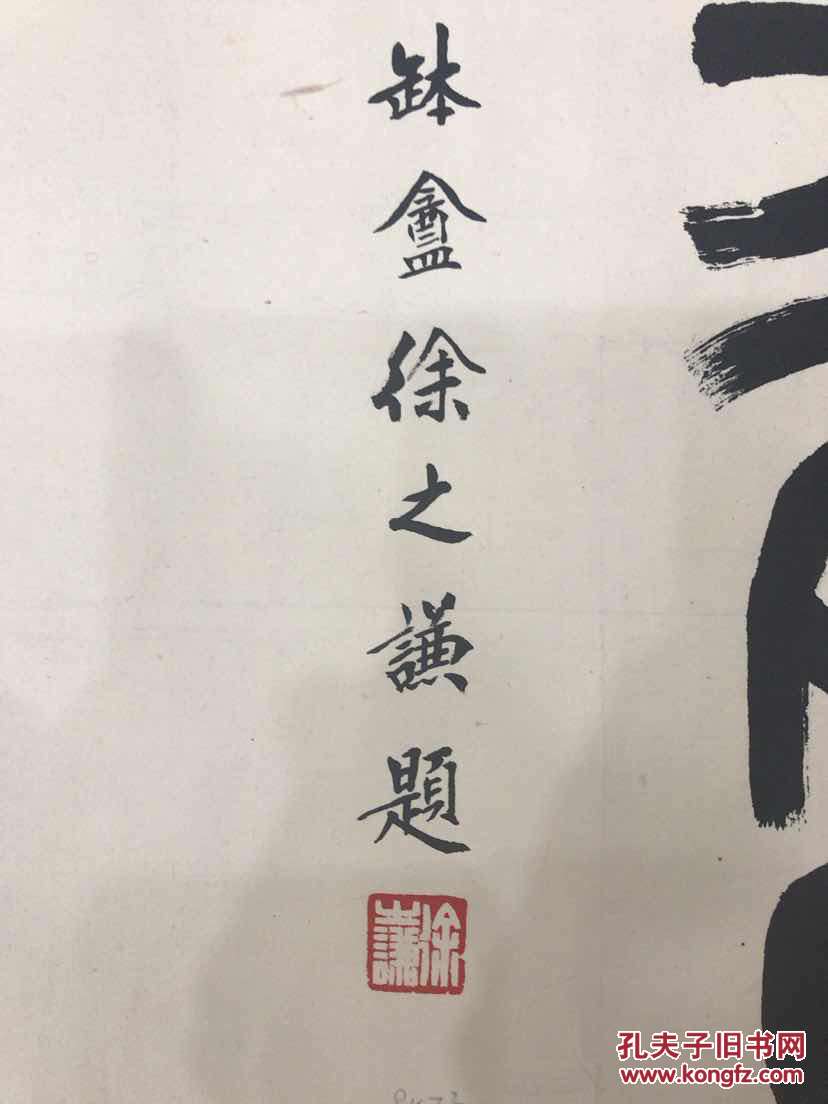 缽盦徐之謙題
徐之謙
孔夫子旧书网
www.kongfz.com